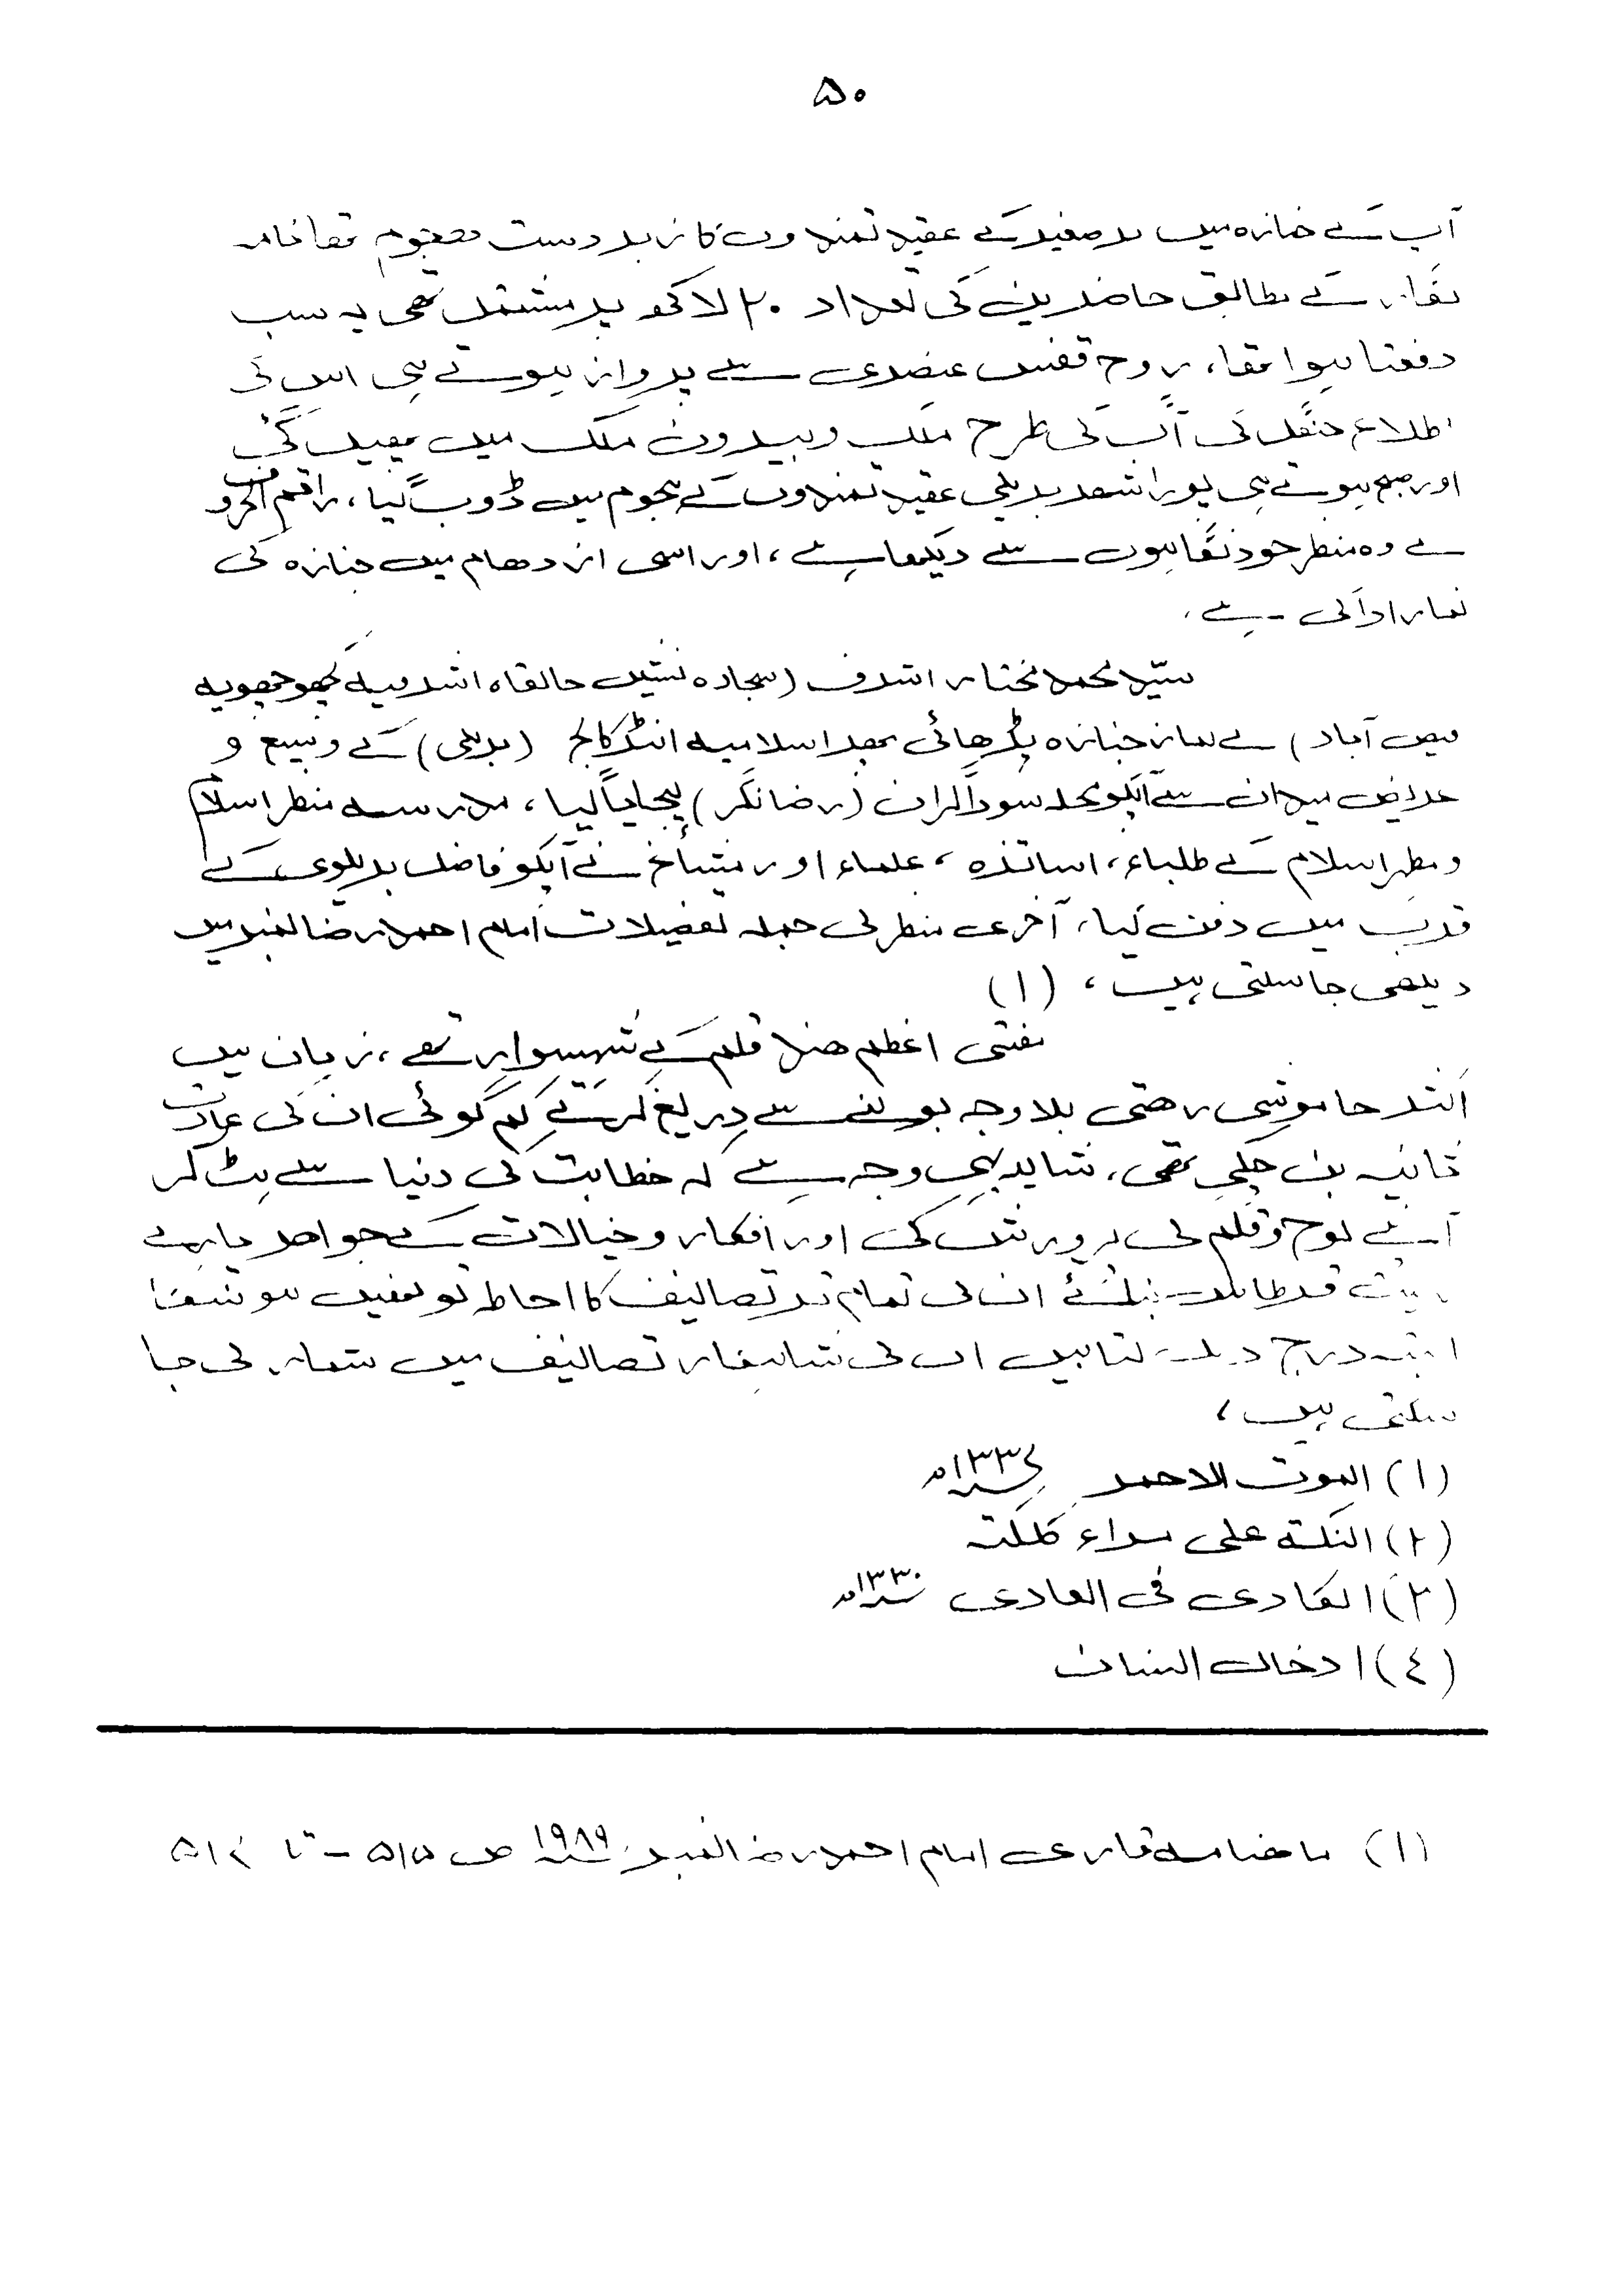 ۵۰
آپ کے جنازہ میں برصغیر کے عقیدتمندوں کا زبردست ہجوم تھا خامہ
نگار کے مطابق حاضرین کی تعداد ۲۰ لاکھ پر مشتمل تھی یہ سب
دفعتا ہوا تھا، روح قفس عنصری سے پرواز ہوتے ہی اس کی
اطلاع جنگل کی آگ کی طرح ملک و بیرون ملک میں پھیل گئی
اور صبح ہوتے ہی پورا شہر بریلی عقیدتمندوں کے ہجوم میں ڈوب گیا، راقم الحروف
نے وہ منظر خود نگاہوں سے دیکھا ہے، اور اسی ازدھام میں جنازہ کی
نماز ادا کی ہے،
سیّد محمد مختار اشرف (سجادہ نشیں خانقاہ اشرفیہ کچھوچھویہ
فیض آباد) نے نماز جنازہ پڑھائی پھر اسلامیہ انٹر کالج (بریلی) کے وسیع و
عریض میدان سے آپکو محلہ سوداگران (رضا نگر) لیجایا گیا، مدرسہ منظر اسلام
و مظہر اسلام کے طلباء، اساتذہ، علماء اور مشأخ نے آپکو فاضل بریلوی کے
قرب میں دفن کیا، آخری منظر کی جملہ تفصیلات امام احمد رضا نمبر میں
دیکھی جا سکتی ہیں، (۱)
مفتی اعظم ھند قلم کے شہسوار تھے، زبان میں
اکثر خاموشی رھتی بلا وجہ بولنے سے دریغ کرتے کم گوئی ان کی عادت
ثانیہ بن چکی تھی، شاید یہی وجہ ہے کہ خطابت کی دنیا سے ہٹ کر
آپ نے لوح و قلم کی پرورش کی اور افکار و خیالات کے جواھر پارے
قرطاس کئے ان کی تمام تر تصانیف کا احاطہ تو نہیں ہو سکتا
البتہ درج ذیل کتابیں ان کی شاہکار تصانیف میں شمار کی جا
سکتی ہیں،
(۱) الموت الاحمر ۱۳۳۷ھ
(۲) النکتہ علی مراء کلکتہ
(۳) القادی فی العادی ۱۳۳۰ھ
(٤) ادخال السنان
(۱) ماھنامہ قاری امام احمد رضا نمبر ۱۹۸۹ ص ۵۱۵ - تا